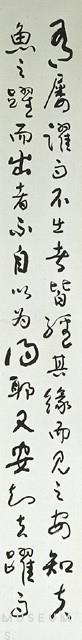 有屢躍而不出者皆經其緣而見之安知夫
魚之躍而出者不自以為得耶又安知夫躍而